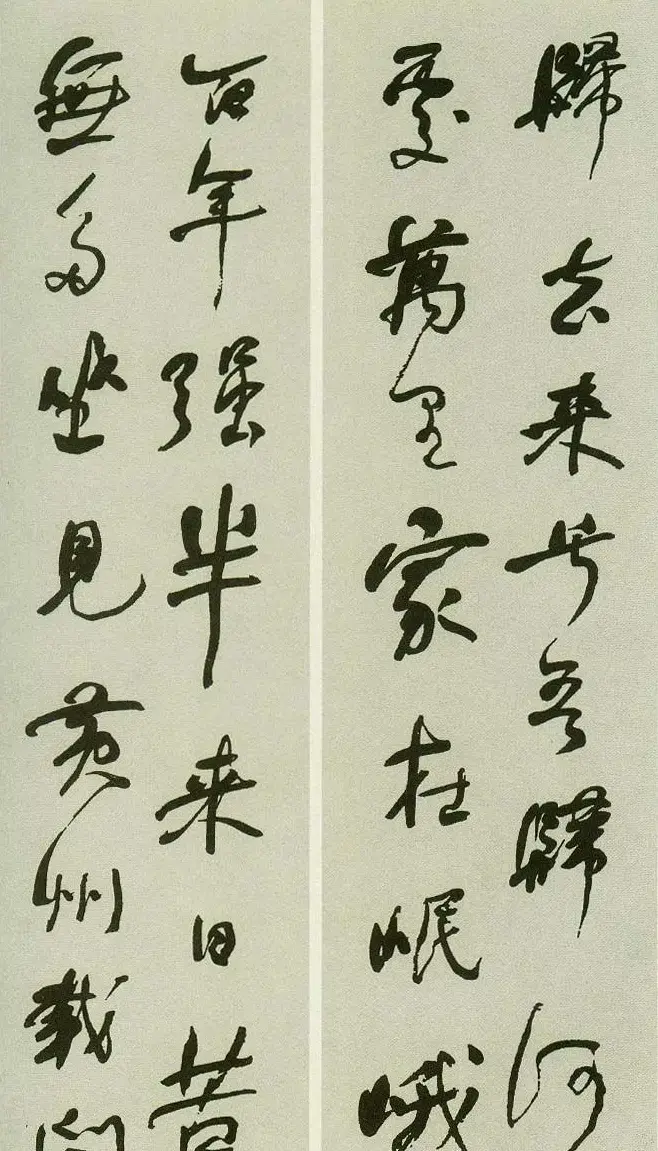 歸去來兮吾歸何
處萬里家在岷峨
百年强半來日苦
無多坐見黃州載